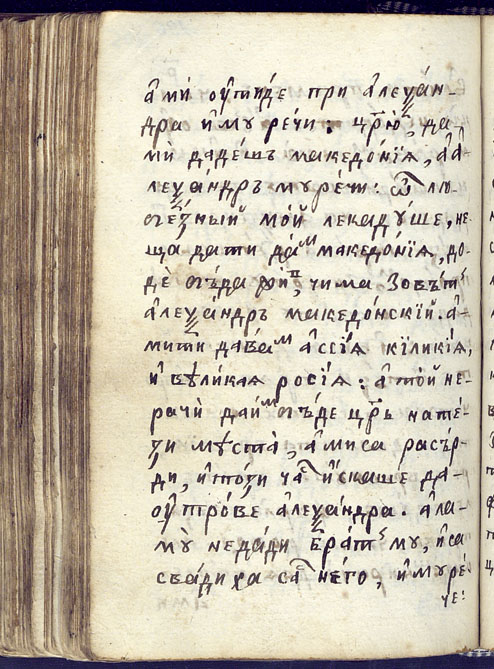 а҆ми ѹ҆тиде при а҆леѯа́н-
дра и҆му речи: цр҃ю, да
ми дадешъ македо́нїѧ, а҆ а҆-
леѯа́ндръ му рече: ѿ лю
безный мой лекадꙋше, не
ща дати да ти македо́нїѧ, до-
де бъда фїлип, чи ма зовѣт
а҆леѯа́ндръ македонскїй. а҆-
ми ти дава́м а҆ссі́ѧ кїликїѧ,
и҆ вѣли́каѧ росїѧ: а҆ той не
рачи дай бъде цр҃ь на те-
зи мѣста, а҆ми са расър-
ди, и҆ този час и҆скаше да
ѹ҆трове а҆леѯа́ндра. а҆ла
му не да́ди брат му, и҆ са
свадиха сас него, и҆ му ре
че: